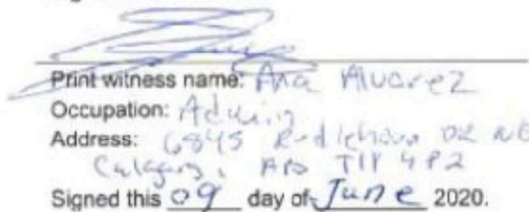 Print witness name: Ana Alvarez
Occupation: Admin
Address: 6845 DR NE
Calgary, AB T1Y 4P2
Signed this 09 day of June 2020.